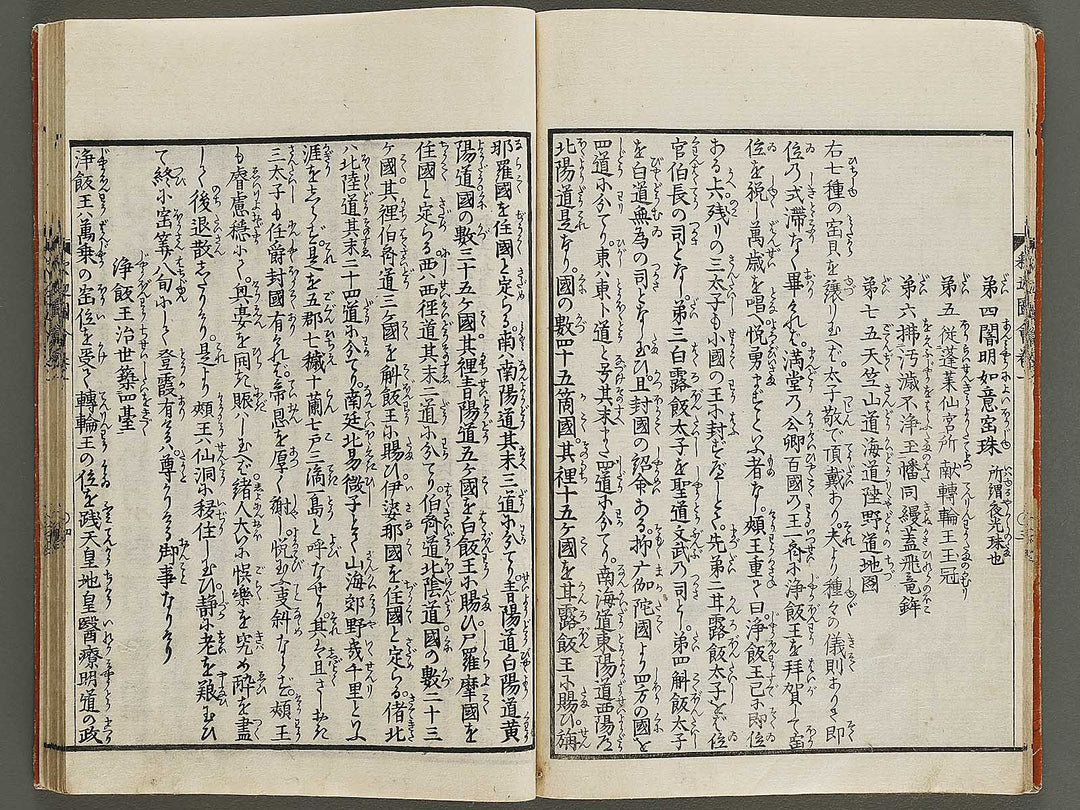 第四闇明如意宝珠 所謂夜光珠也
第五従蓬莱仙宮所献轉輪王玉冠
第六拂汚減不浄玉幡同縵蓋飛竜鉾
第七五天竺山道海道陸野道地圖
右七種の宝貝を譲り玉へバ。太子敬で頂戴あり。夫より種々の儀則ありき即
位乃式滞なく畢れバ。満堂乃公卿百國の王一等に浄飯王を拝賀して宝
位を祝し萬歳を唱へ悦勇まずといふ者なし。頗王重て曰。浄飯王已に即位
ある上ハ残りの三太子も小國の王に封ずべしとて。先第二甘露飯太子をバ位
官伯長の司となし。第三白露飯太子を聖道文武乃司とし。第四斛飯太子
を白道無為の司となし玉ひ且封國の詔命ある。抑广伽陀國より四方の國を
四道に分てり。東ハ東卜道と号其末また四道に分てり。南海道東陽道西陽道
北陽道是なり。國の數四十五箇國。其裡十五ヶ國を甘露飯王に賜ひ旃
耶羅國を住國と定らる。南ハ南陽道其末三道に分てり。青陽道白陽道黄
陽道國の數三十五ヶ國。其裡青陽道五ヶ國を白飯王に賜ひ尸羅摩國を
住國と定らる西ハ西徑道其末二道に分てり。伯耆道北陰道國の數二十三
ヶ國其裡伯耆道三ヶ國を斛飯王に賜ひ伊娑那國を住國と定らる偖北
ハ北陸道其末二十四道に分てり。南廷北易徼子とて山海郊野幾千里といふ
涯をしらず是を五郡七穢十蘭七戸三滴島と呼なせり。其を且さしおき
三太子も任爵封國有けれバ。帝恩を厚く謝し。悦玉ふ事斜ならず。頗王
も睿慮穏にて。興宴を同き賑ハし玉へバ緒人大いに悞樂を究め酔を盡
して後退散したりけり。是より頗王ハ仙洞に移住し玉ひ静に老を艱玉ひ
て終に宝筭八旬にして登霞有けるハ尊かりける御事なりけり
浄飯王治世築四臺
浄飯王ハ萬乗の宝位を受て轉輪王の位を践天皇地皇醫療明道の政